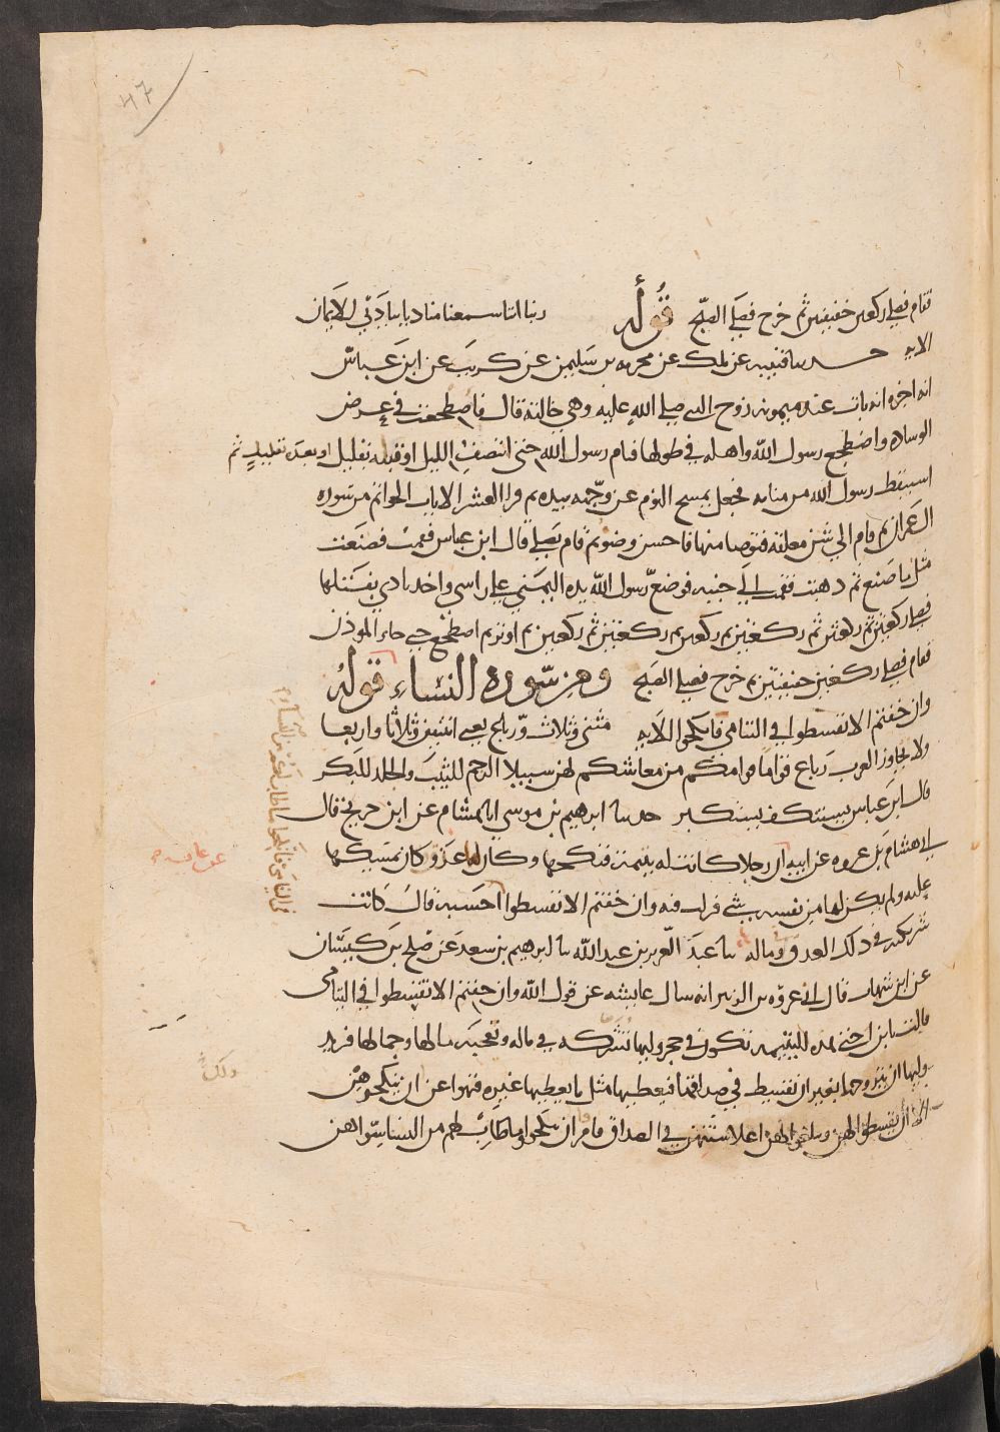 فقام فصلى ركعتين خفيفتين ثم خرج فصلى الصبح قوله ربنا اننا سمعنا مناديا ينادي للايمان
الاية حدثنا قتيبه عن ملك عن مخرمه بن سليمن عن كريب عن ابن عباس
انه اخبره انه بات عند ميمونه زوج النبي صلى الله عليه وهي خالته قال فاضطجعت في عرض
الوساده واضطجع رسول الله واهله في طولها فنام رسول الله حتى انتصف الليل او قبله بقليل او بعده بقليل ثم
استيقظ رسول الله من منامه فجعل يمسح النوم عن وجهه بيده ثم قرا العشر الايات الخواتم من سوره
ال عمران ثم قام الى شن معلقه فتوضا منها فاحسن وضوه ثم قام يصلي قال ابن عباس فقمت فصنعت
مثل ما صنع ثم ذهبت فقمت الى جنبه فوضع رسول الله يده اليمنى على راسي واخذ باذني يفتلها
فصلى ركعتين ثم ركعتين ثم ركعتين ثم ركعتين ثم ركعتين ثم ركعتين ثم اوتر ثم اضطجع حتى جاء الموذن
فقام فصلى ركعتين خفيفتين ثم خرج فصلى الصبح ومن سورة النساء قوله
وان خفتم الا تقسطوا في اليتامى فانكحوا الايه مثنى وثلاث ورباع يعني اثنتين وثلاثا واربعا
ولا تجاوز العرب رباع قواما قوامكم من معاشكم لهن سبيلا الرجم للثيب والجلد للبكر
قال ابن عباس يستنكف يستكبر حدثنا ابراهيم بن موسى انا هشام عن ابن جريج قال
اني هشام بن عروه عن ابيه ان رجلا كانت له يتيمة فنكحها وكان لها عذق وكان يمسكها
عليه ولم يكن لها من نفسه شي فنزلت فيه وان خفتم الا تقسطوا احسبه قال كانت
شريكته في ذلك العذق وماله نا عبد العزيز بن عبد الله نا ابرهيم بن سعد عن صلح بن كيسان
عن ابن شهاب قال اني عروه بن الزبير انه سال عايشه عن قول الله وان خفتم الا تقسطوا في اليتامى
قالت يا بن اختي هذه اليتيمه تكون في حجر وليها تشركه في ماله وتعجبه مالها وجمالها فيريد
وليها ان يتزوجها بغير ان يقسط في صداقها فيعطيها مثل ما يعطيها غيره فنهوا عن ان ينكحوهن
الا ان يقسطوا لهن ويبلغوا لهن اعلا سنتهن في الصداق فامروا ان ينكحوا ما طاب لهم من النسا سواهن
عن عايشه